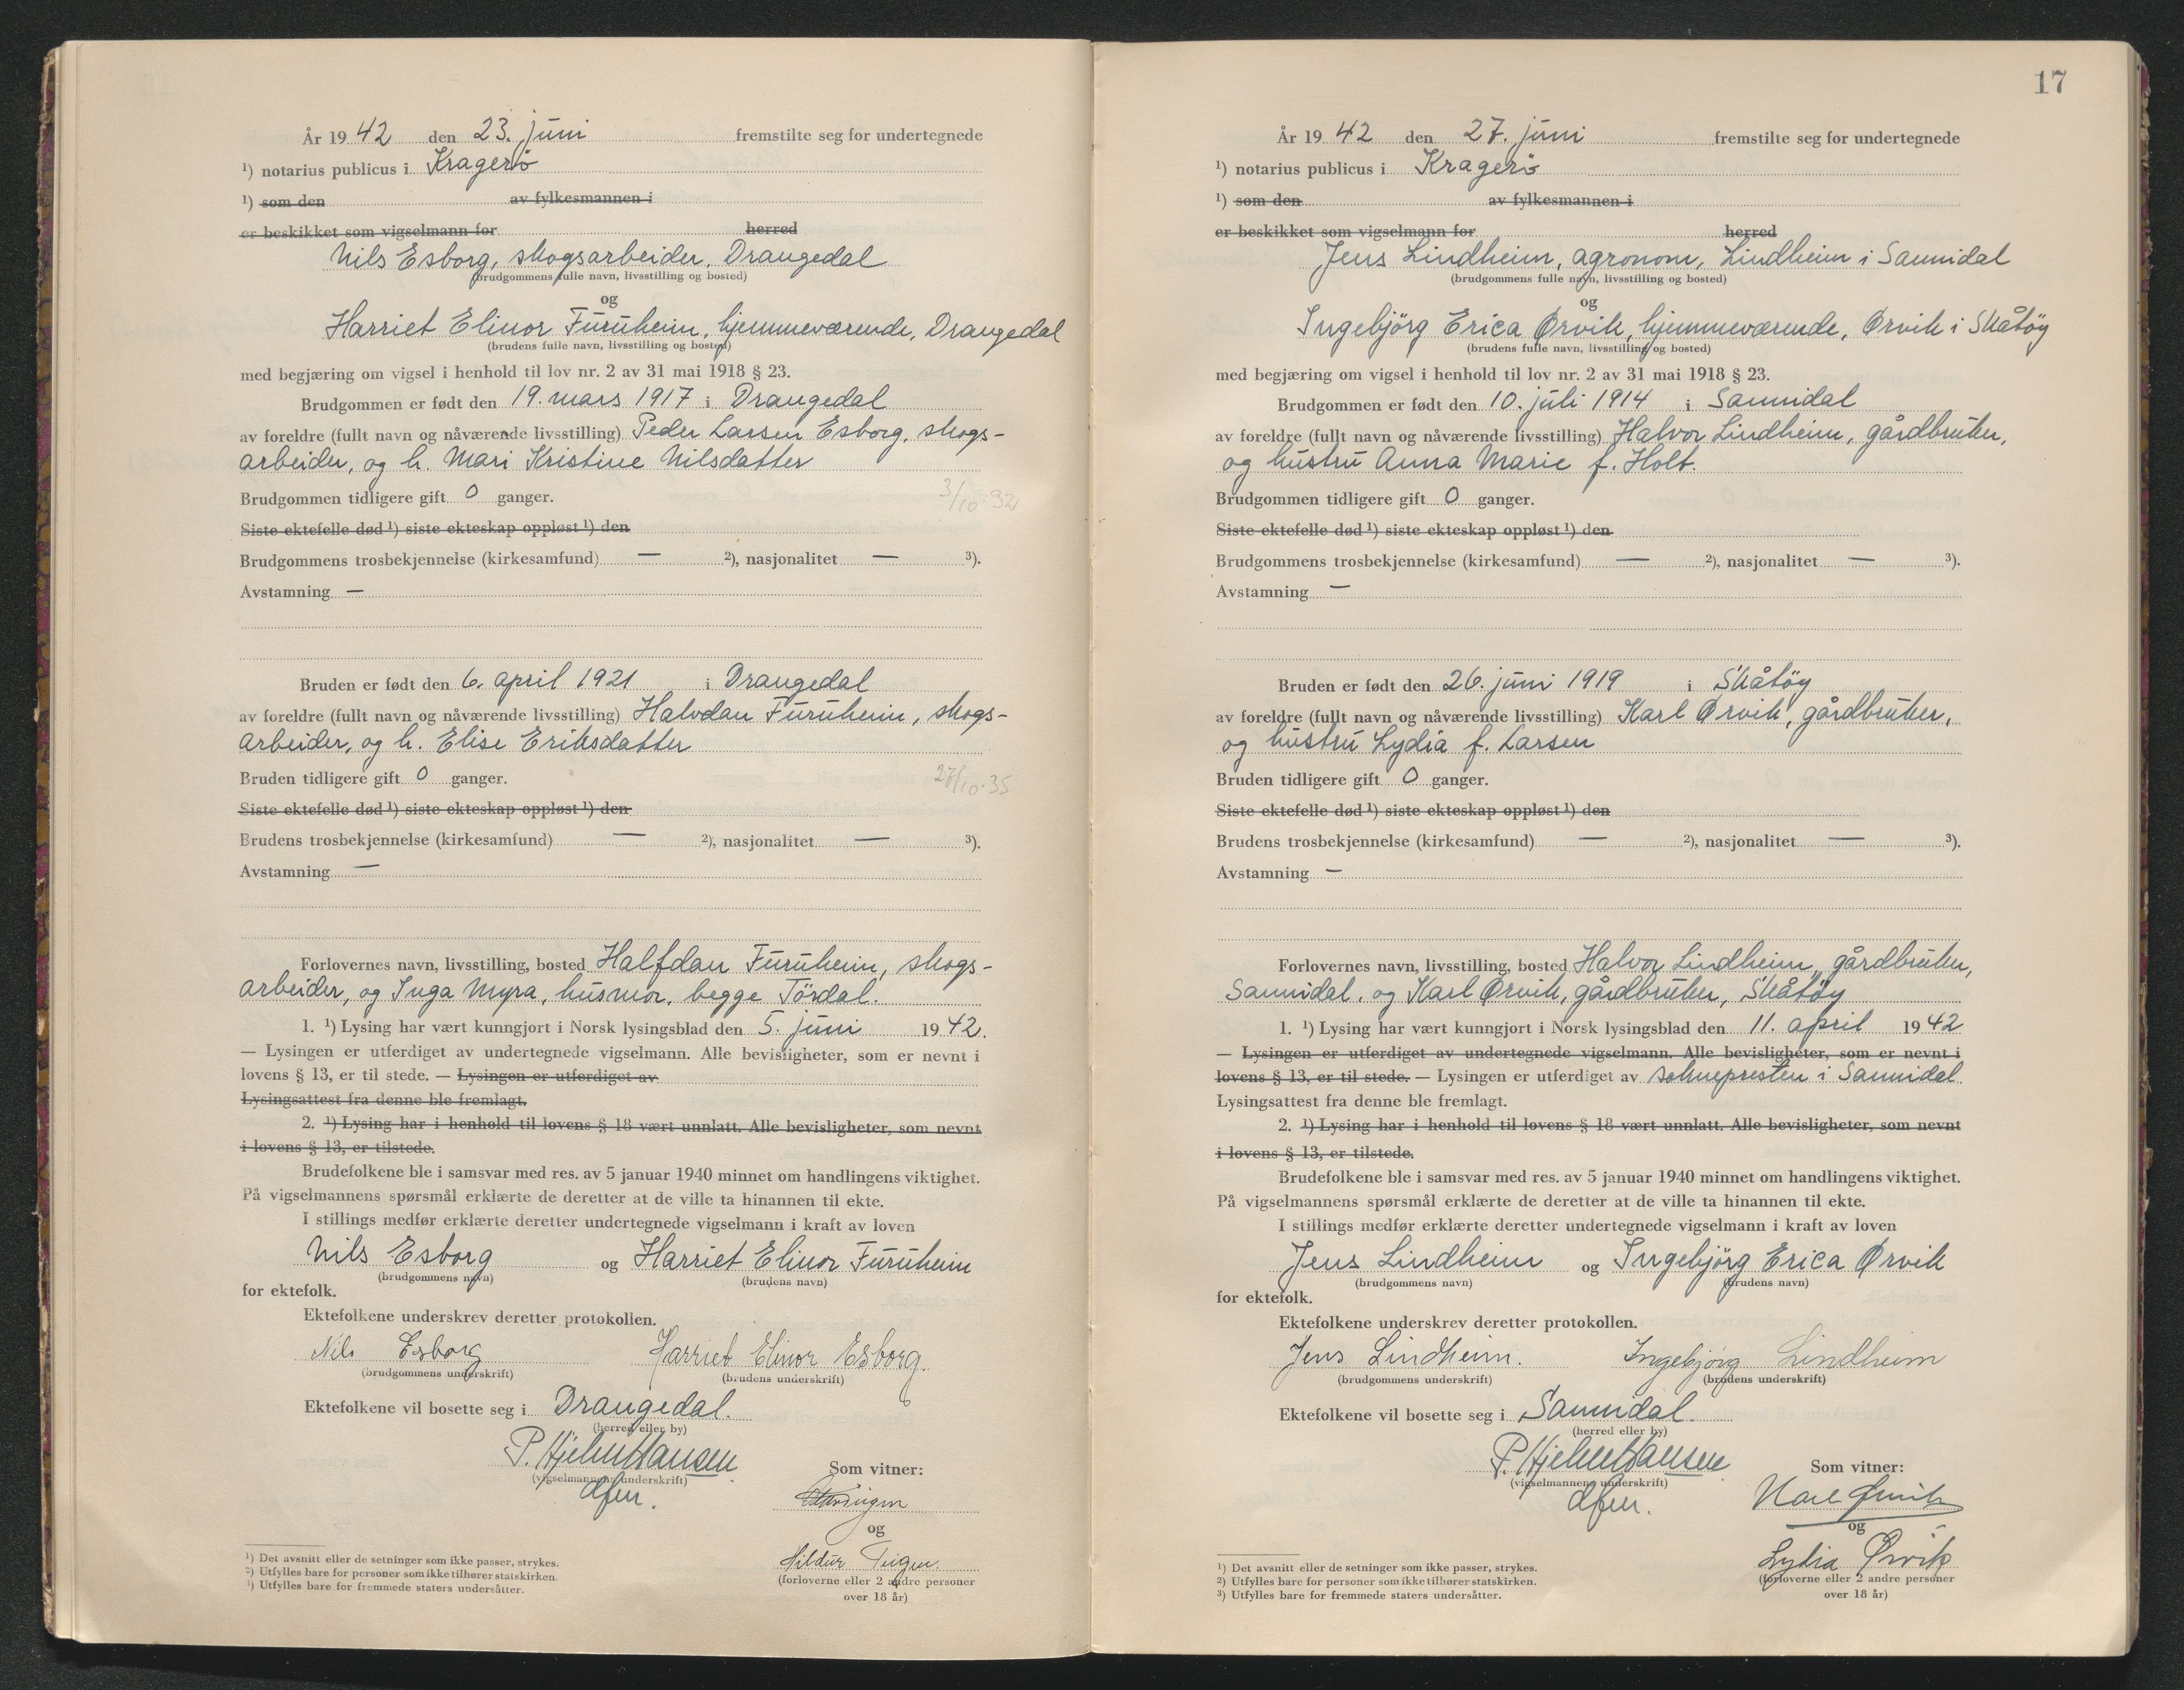 År 1942 den 23. juni fremstilte seg for undertegnede
¹) notarius publicus i Kragerö
¹) som den av fylkesmannen i
er beskikket som vigselmann for herred
Nils Esborg, skogsarbeider, Drangedal
(brudgommens fulle navn, livsstilling og bosted)
og
Harriet Elinor Furuheim, hjemmeværende, Drangedal
(brudens fulle navn, livsstilling og bosted)
med begjæring om vigsel i henhold til lov nr. 2 av 31 mai 1918 § 23.
Brudgommen er født den 19. mars 1917 i Drangedal
av foreldre (fullt navn og nåværende livsstilling) Peder Larsen Esborg, skogs-
arbeider, og h. Mari Kristine Nilsdatter
Brudgommen tidligere gift 0 ganger. 3/10-92
Siste ektefelle død ¹) siste ekteskap oppløst ¹) den
Brudgommens trosbekjennelse (kirkesamfund) — ²), nasjonalitet — ³).
Avstamning —
Bruden er født den 6. april 1921 i Drangedal
av foreldre (fullt navn og nåværende livsstilling) Halvdan Furuheim, skogs-
arbeider, og h. Elise Eriksdatter
Bruden tidligere gift 0 ganger. 27/10-35
Siste ektefelle død ¹) siste ekteskap oppløst ¹) den
Brudens trosbekjennelse (kirkesamfund) — ²), nasjonalitet — ³).
Avstamning —
Forlovernes navn, livsstilling, bosted Halfdan Furuheim, skogs-
arbeider, og Inga Myra, husmor, begge Tördal.
1. ¹) Lysing har vært kunngjort i Norsk lysingsblad den 5. juni 1942.
— Lysingen er utferdiget av undertegnede vigselmann. Alle bevisligheter, som er nevnt i
lovens § 13, er til stede. — Lysingen er utferdiget av
Lysingsattest fra denne ble fremlagt.
2. ¹) Lysing har i henhold til lovens § 18 vært unnlatt. Alle bevisligheter, som nevnt
i lovens § 13, er tilstede.
Brudefolkene ble i samsvar med res. av 5 januar 1940 minnet om handlingens viktighet.
På vigselmannens spørsmål erklærte de deretter at de ville ta hinannen til ekte.
I stillings medfør erklærte deretter undertegnede vigselmann i kraft av loven
Nils Esborg og Harriet Elinor Furuheim
(brudgommens navn) (brudens navn)
for ektefolk.
Ektefolkene underskrev deretter protokollen.
Nils Esborg Harriet Elinor Esborg.
(brudgommens underskrift) (brudens underskrift)
Ektefolkene vil bosette seg i Drangedal.
(herred eller by)
P. Hjelm Hansen
(vigselmannens underskrift)
dfm.
Som vitner:
og
Hildur Teigen.
(forloverne eller 2 andre personer
over 18 år)
¹) Det avsnitt eller de setninger som ikke passer, strykes.
²) Utfylles bare for personer som ikke tilhører statskirken.
³) Utfylles bare for fremmede staters undersåtter.
17
År 1942 den 27. juni fremstilte seg for undertegnede
¹) notarius publicus i Kragerö
¹) som den av fylkesmannen i
er beskikket som vigselmann for herred
Jens Lindheim, agronom, Lindheim i Sannidal
(brudgommens fulle navn, livsstilling og bosted)
og
Ingebjörg Erica Ørvik, hjemmeværende, Ørvik i Skåtöy
(brudens fulle navn, livsstilling og bosted)
med begjæring om vigsel i henhold til lov nr. 2 av 31 mai 1918 § 23.
Brudgommen er født den 10. juli 1914 i Sannidal
av foreldre (fullt navn og nåværende livsstilling) Halvor Lindheim, gårdbruker,
og hustru Anna Marie f. Holt.
Brudgommen tidligere gift 0 ganger.
Siste ektefelle død ¹) siste ekteskap oppløst ¹) den
Brudgommens trosbekjennelse (kirkesamfund) — ²), nasjonalitet — ³).
Avstamning —
Bruden er født den 26. juni 1919 i Skåtöy
av foreldre (fullt navn og nåværende livsstilling) Karl Ørvik, gårdbruker,
og hustru Lydia f. Larsen
Bruden tidligere gift 0 ganger.
Siste ektefelle død ¹) siste ekteskap oppløst ¹) den
Brudens trosbekjennelse (kirkesamfund) — ²), nasjonalitet — ³).
Avstamning —
Forlovernes navn, livsstilling, bosted Halvor Lindheim, gårdbruker,
Sannidal, og Karl Ørvik, gårdbruker, Skåtöy
1. ¹) Lysing har vært kunngjort i Norsk lysingsblad den 11. april 1942
— Lysingen er utferdiget av undertegnede vigselmann. Alle bevisligheter, som er nevnt i
lovens § 13, er til stede. — Lysingen er utferdiget av soknepresten i Sannidal
Lysingsattest fra denne ble fremlagt.
2. ¹) Lysing har i henhold til lovens § 18 vært unnlatt. Alle bevisligheter, som nevnt
i lovens § 13, er tilstede.
Brudefolkene ble i samsvar med res. av 5 januar 1940 minnet om handlingens viktighet.
På vigselmannens spørsmål erklærte de deretter at de ville ta hinannen til ekte.
I stillings medfør erklærte deretter undertegnede vigselmann i kraft av loven
Jens Lindheim og Ingebjörg Erica Ørvik
(brudgommens navn) (brudens navn)
for ektefolk.
Ektefolkene underskrev deretter protokollen.
Jens Lindheim. Ingebjørg Lindheim
(brudgommens underskrift) (brudens underskrift)
Ektefolkene vil bosette seg i Sannidal.
(herred eller by)
P. Hjelm Hansen
(vigselmannens underskrift)
dfm.
Som vitner:
Karl Ørvik
og
Lydia Ørvik
(forloverne eller 2 andre personer
over 18 år)
¹) Det avsnitt eller de setninger som ikke passer, strykes.
²) Utfylles bare for personer som ikke tilhører statskirken.
³) Utfylles bare for fremmede staters undersåtter.